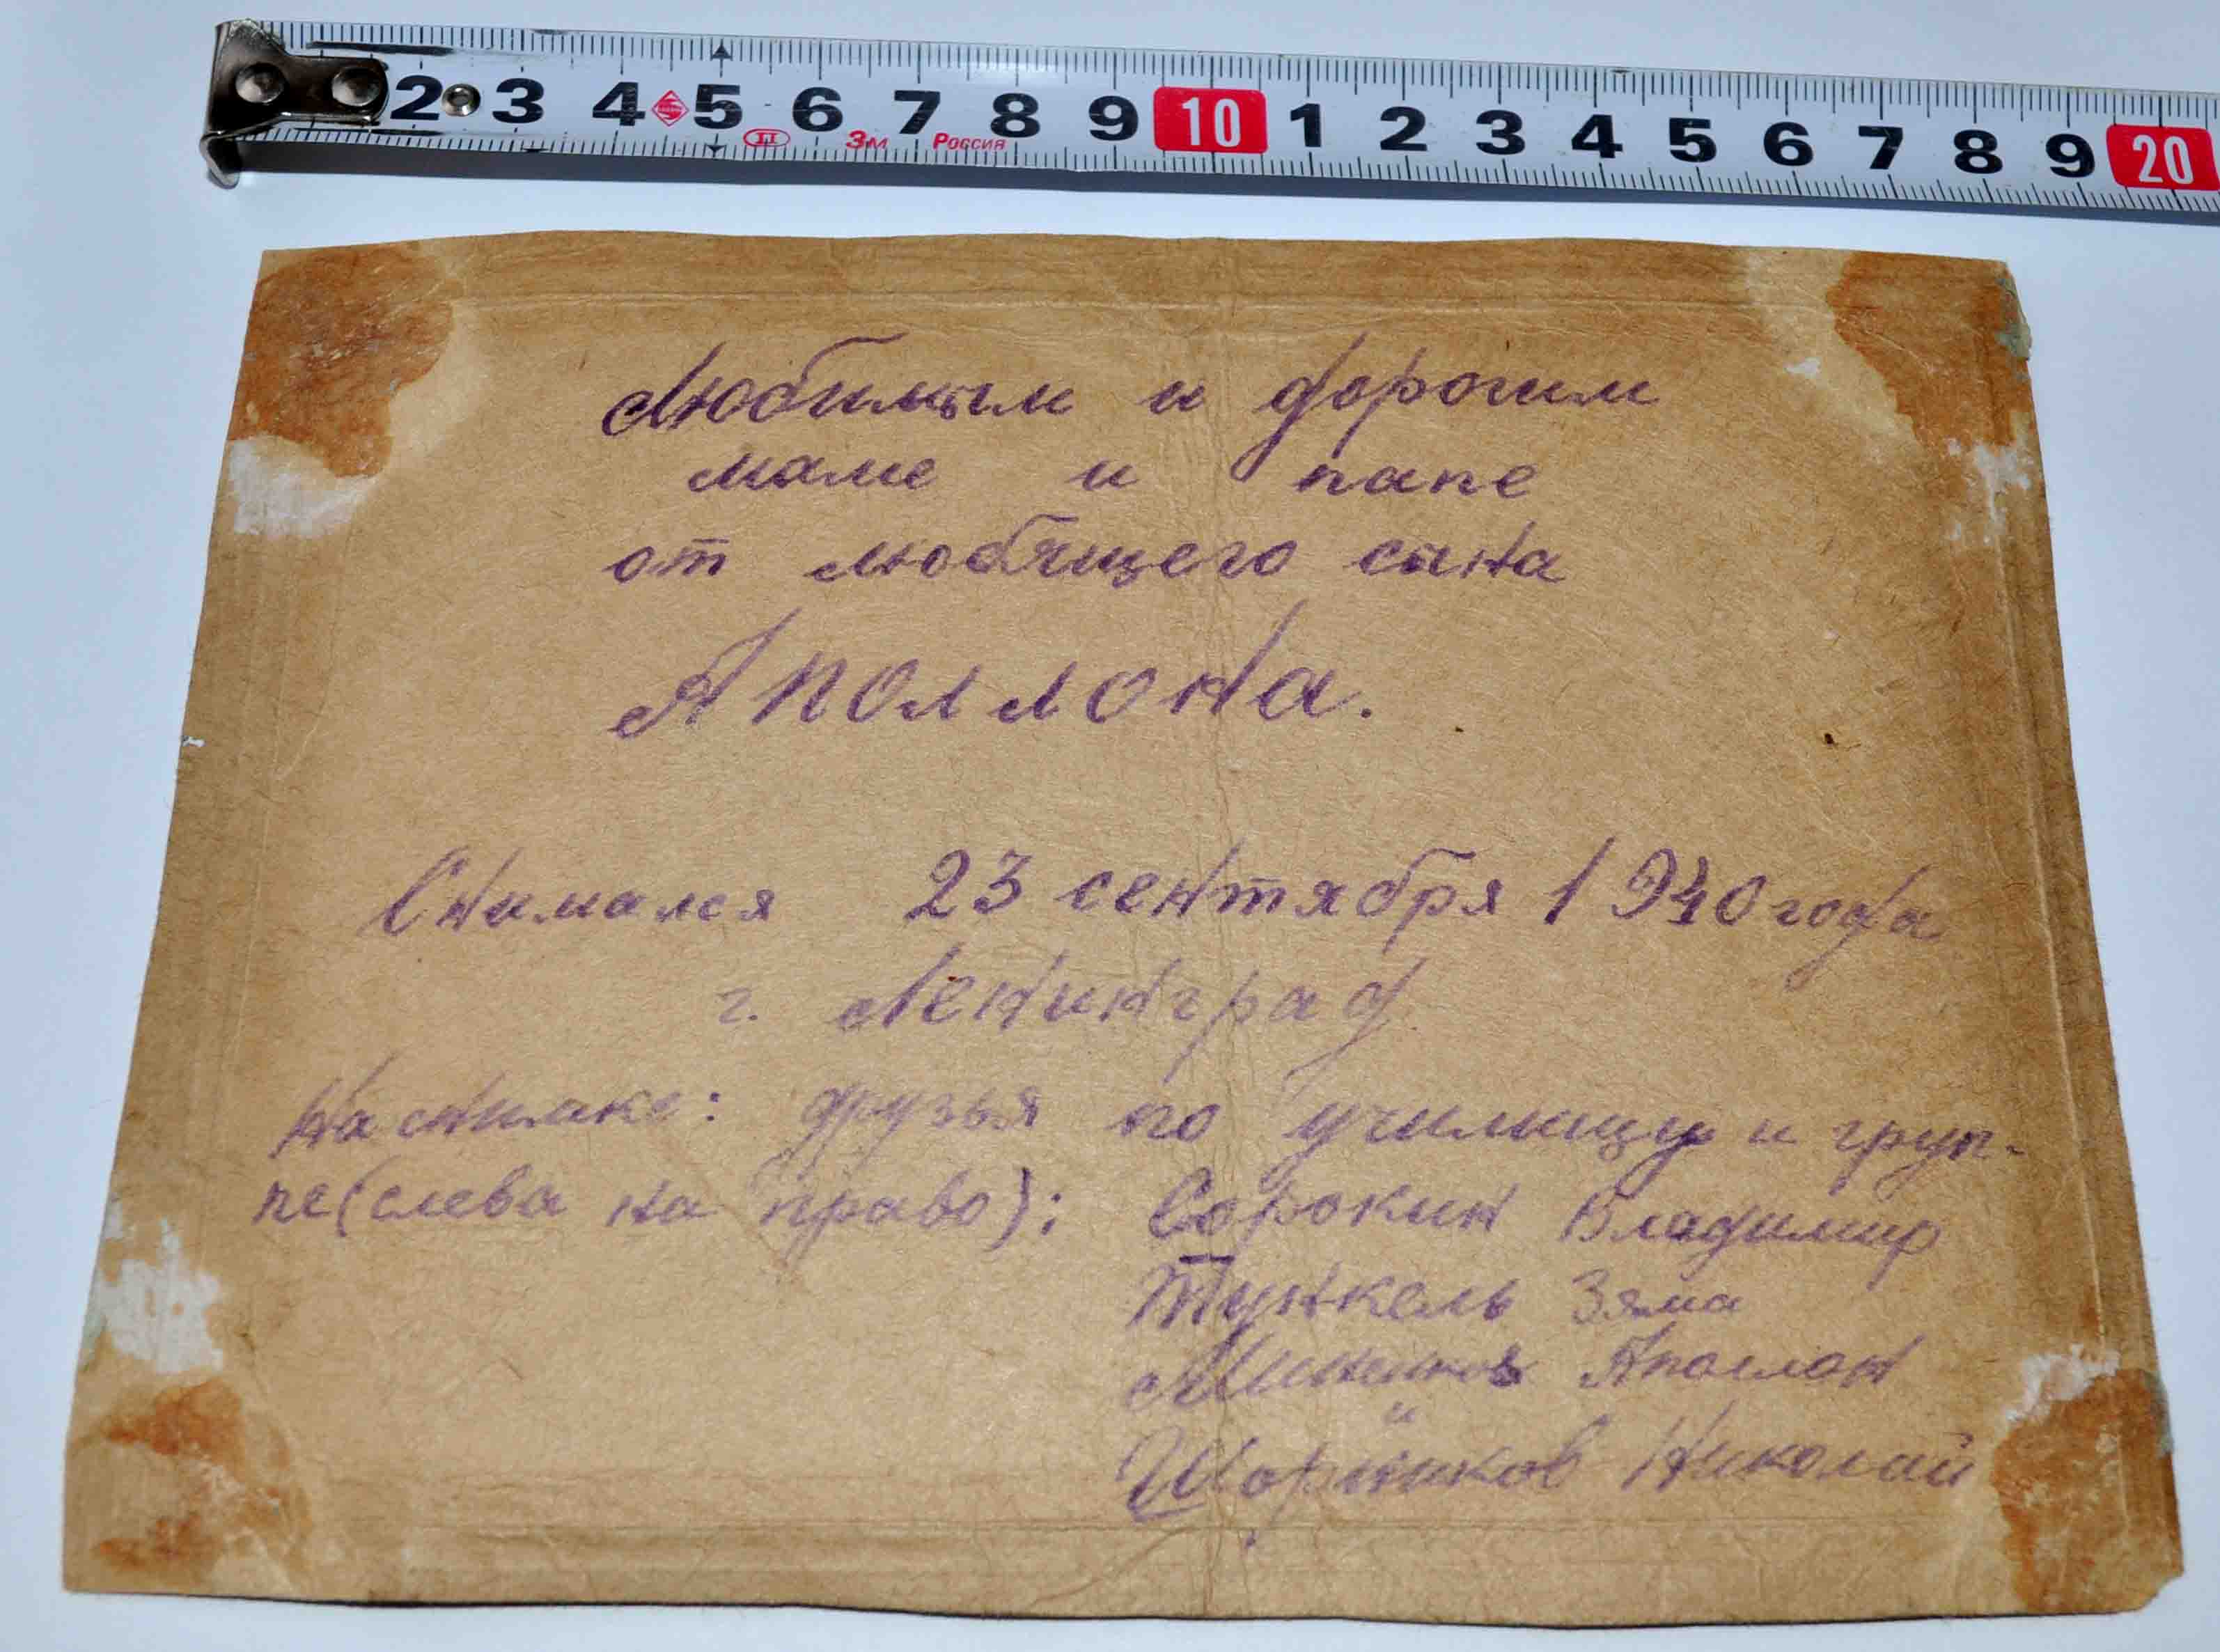 2 3 4 5 6 7 8 9 10 1 2 3 4 5 6 7 8 9 20
3м Россия
Любимым и дорогим
маме и папе
от любящего сына
Аполлона.
Снимался 23 сентября 1940 года
г. Ленинград.
На снимке: друзья по училищу и груп-
пе (слева на право): Сорокин Владимир
Тункель Зяма
Аполлон
и
Николай